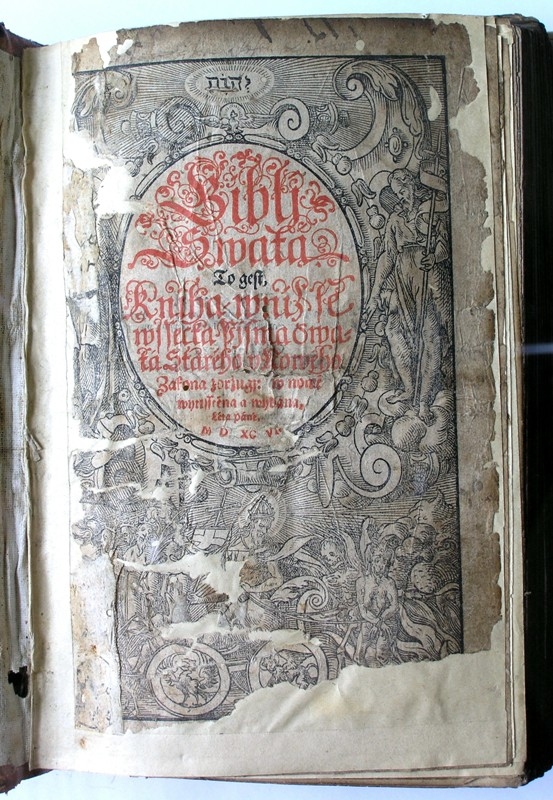 יהוה
Biblj
Swata
To gest,
Kniha wnijž se
wssecka Pisma Swa-
ta Stareho y Noweho
Zakona zdržugj: w nowě
wytisstěna a wydana,
Léta Páně.
M D XC VI